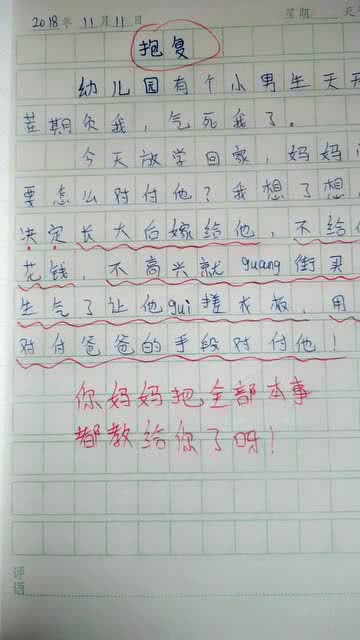 2018年11月11日 星期 天
抱复
幼儿园有个小男生天天
茬期负我，气死我了。
今天放学回家，妈妈
要怎么对付他？我想了想
决定长大后嫁给他，不给
花钱，不高兴就guang街买
生气了让他gui搓衣板，用
对付爸爸的手段对付他！
你妈妈把全部本事
都教给你了呀！
评语